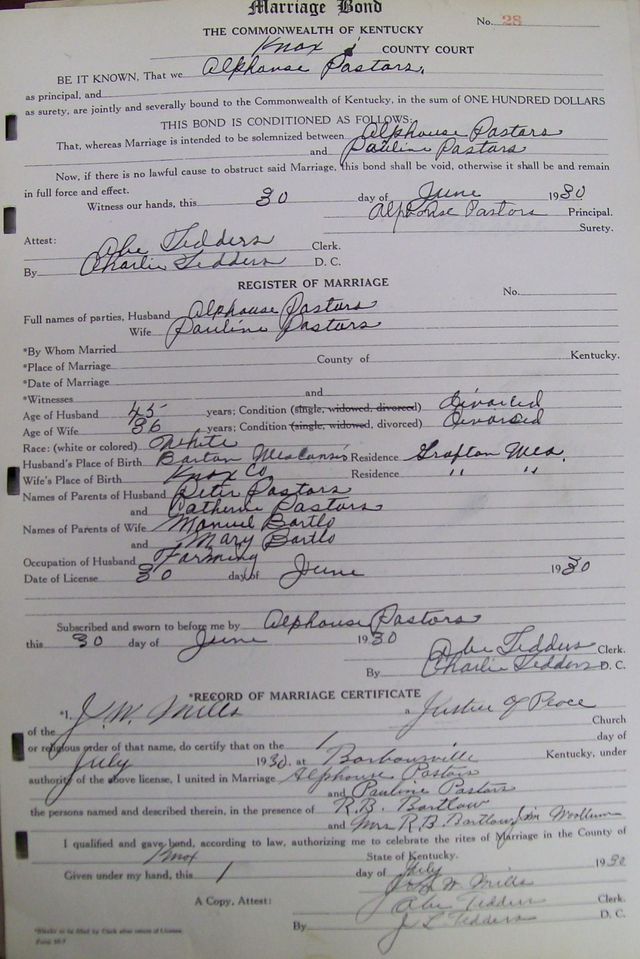 Marriage Bond
No. 28
THE COMMONWEALTH OF KENTUCKY
Knox COUNTY COURT
BE IT KNOWN, That we Alphouse Pastors,
as principal, and
as surety, are jointly and severally bound to the Commonwealth of Kentucky, in the sum of ONE HUNDRED DOLLARS
THIS BOND IS CONDITIONED AS FOLLOWS:
That, whereas Marriage is intended to be solemnized between Alphouse Pastors
and Pauline Pastors
Now, if there is no lawful cause to obstruct said Marriage, this bond shall be void, otherwise it shall be and remain
in full force and effect.
Witness our hands, this 30 day of June 1930
Alphonse Pastors Principal.
Surety.
Attest:
Abe Tedders Clerk.
By Charlie Tedders D. C.
REGISTER OF MARRIAGE
No.
Full names of parties, Husband Alphouse Pastors
Wife Pauline Pastors
*By Whom Married
*Place of Marriage County of Kentucky.
*Date of Marriage
*Witnesses and
Age of Husband 45 years; Condition (single, widowed, divorced) divorced
Age of Wife 36 years; Condition (single, widowed, divorced) divorced
Race: (white or colored) White
Husband's Place of Birth Barton Residence Grafton
Wife's Place of Birth Knox Co Residence " "
Names of Parents of Husband Peter Pastors
and Catherine Pastors
Names of Parents of Wife Manuel Bartlo
and Mary Bartlo
Occupation of Husband Farming
Date of License 30 day of June 1930
Subscribed and sworn to before me by Alphouse Pastors
this 30 day of June 1930
Abe Tedders Clerk.
By Charlie Tedders D. C.
*RECORD OF MARRIAGE CERTIFICATE
*I, J. W. Mills a Justice of Peace
of the Church
or religious order of that name, do certify that on the 1 day of
July 1930, at Barbourville Kentucky, under
authority of the above license, I united in Marriage Alphouse Pastors
and Pauline Pastors
the persons named and described therein, in the presence of R.B. Bartlow
and Mrs R.B. Bartlow, Jim Woollum
I qualified and gave bond, according to law, authorizing me to celebrate the rites of Marriage in the County of
Knox State of Kentucky.
Given under my hand, this 1 day of July 1930
J. W. Mills
A Copy, Attest: Abe Tedders Clerk.
By J L Tedders D. C.
*Blanks to be filled by Clerk after return of License